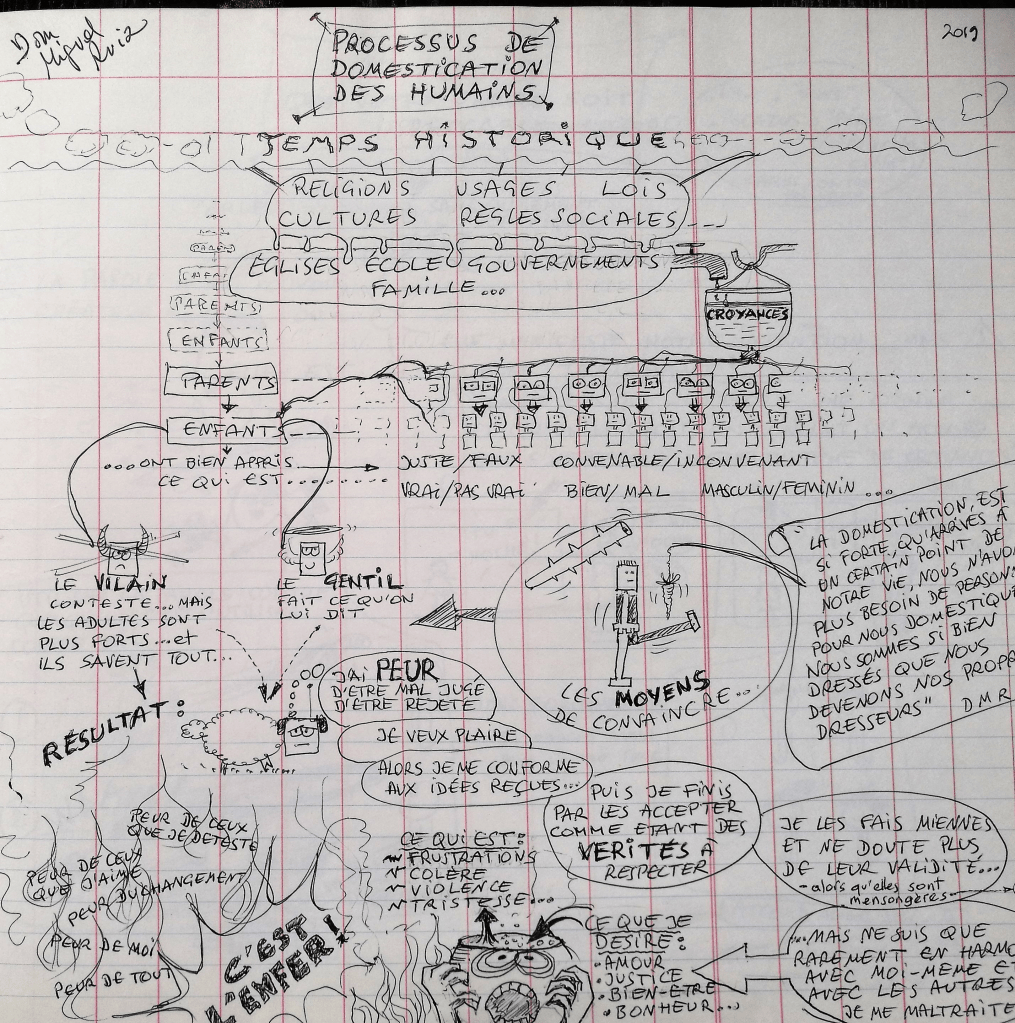 Dom
Miguel
Ruiz
2019
PROCESSUS DE
DOMESTICATION
DES HUMAINS
TEMPS HISTORIQUE
RELIGIONS USAGES LOIS
CULTURES RÈGLES SOCIALES
ÉGLISES ÉCOLE GOUVERNEMENTS
FAMILLE...
CROYANCES
PARENTS
ENFANTS
PARENTS
ENFANTS
...ONT BIEN APPRIS
CE QUI EST........
JUSTE/FAUX CONVENABLE/INCONVENANT
VRAI/PAS VRAI BIEN/MAL MASCULIN/FEMININ...
LE VILAIN
CONTESTE...MAIS
LES ADULTES SONT
PLUS FORTS...et
ILS SAVENT TOUT...
LE GENTIL
FAIT CE QU'ON
LUI DIT
LES MOYENS
DE CONVAINCRE...
LA DOMESTICATION, EST
SI FORTE, QU'ARRIVÉS À
UN CERTAIN POINT DE
NOTRE VIE, NOUS N'AVO
PLUS BESOIN DE PERSON
POUR NOUS DOMESTIQUE
NOUS SOMMES SI BIEN
DRESSÉS QUE NOUS
DEVENONS NOS PROPR
DRESSEURS" D M R
RÉSULTAT:
J'AI PEUR
D'ÊTRE MAL JUGÉ
D'ÊTRE REJETÉ
JE VEUX PLAIRE
ALORS JE ME CONFORME
AUX IDÉES REÇUES...
PUIS JE FINIS
PAR LES ACCEPTER
COMME ETANT DES
VERITÉS À
RESPECTER
JE LES FAIS MIENNES
ET NE DOUTE PLUS
DE LEUR VALIDITÉ...
-alors qu'elles sont
mensongères-
...MAIS NE SUIS QUE
RAREMENT EN HARMO
AVEC MOI-MÊME ET
AVEC LES AUTRES
JE ME MALTRAITE
PEUR DE CEUX
QUE JE DETESTE
PEUR DE CEUX
QUE J'AIME
PEUR DU CHANGEMENT
PEUR DE MOI
PEUR DE TOUT
C'EST
L'ENFER!
CE QUI EST:
FRUSTRATIONS
COLÈRE
VIOLENCE
TRISTESSE...
CE QUE JE
DESIRE:
•AMOUR
•JUSTICE
•BIEN-ETRE
•BONHEUR...